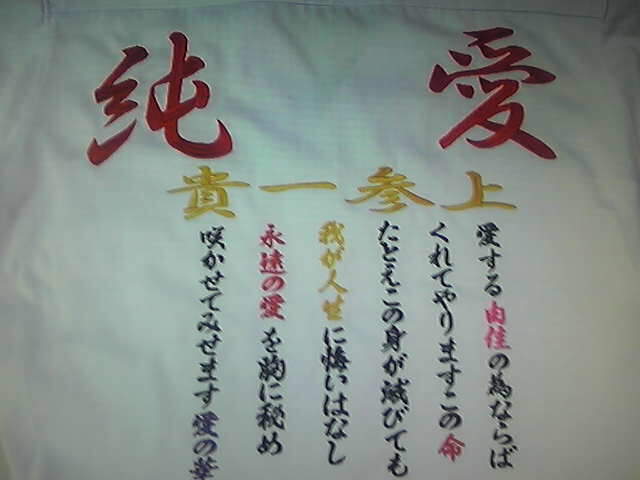 純愛
貴一参上
愛する由佳の為ならば
くれてやりますこの命
たとえこの身が滅びても
我が人生に悔いはなし
永遠の愛を胸に秘め
咲かせてみせます愛の華